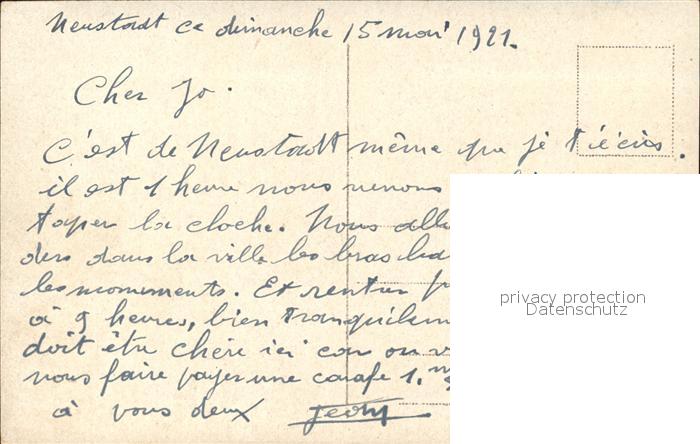 Neustadt ce dimanche 15 mai 1921.
Cher Jo.
C'est de Neustadt même que je t'écris.
il est 1 heure nous venons
taper la cloche. Nous alle
ders dans la ville les bras bal
les monuments. Et rentrer p
à 9 heures, bien tranquilem
doit être chère ici car on v
nous faire payer une carafe 1.
à vous deux
privacy protection
Datenschutz